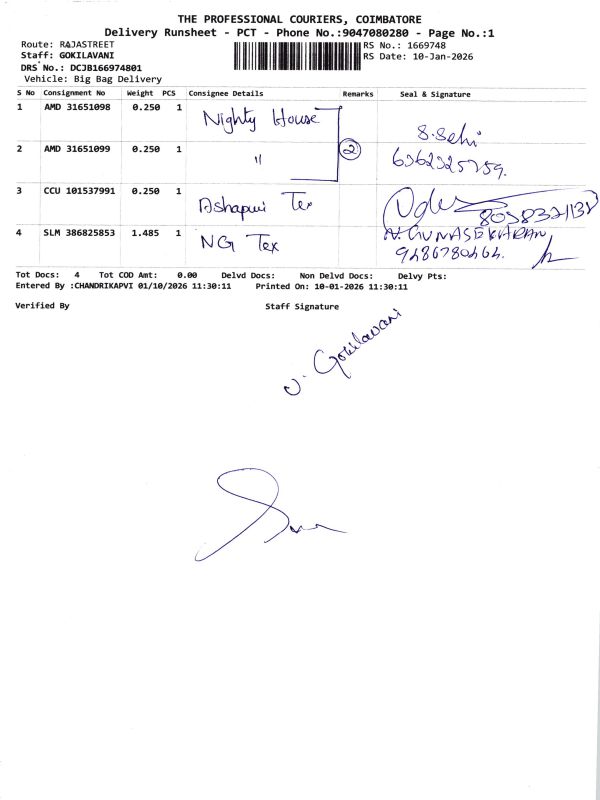 THE PROFESSIONAL COURIERS, COIMBATORE
Delivery Runsheet - PCT - Phone No.:9047080280 - Page No.:1
Route: RAJASTREET
RS No.: 1669748
Staff: GOKILAVANI
RS Date: 10-Jan-2026
DRS No.: DCJB166974801
Vehicle: Big Bag Delivery
S No Consignment No Weight PCS Consignee Details Remarks Seal & Signature
1 AMD 31651098 0.250 1 Nighty House
2 S.Sehi
2 AMD 31651099 0.250 1 "
6362325759.
3 CCU 101537991 0.250 1 Ashapuri Tex
4 SLM 386825853 1.485 1 NG Tex N. GUNASEKARAN
9486780464.
Tot Docs: 4 Tot COD Amt: 0.00 Delvd Docs: Non Delvd Docs: Delvy Pts:
Entered By :CHANDRIKAPVI 01/10/2026 11:30:11 Printed On: 10-01-2026 11:30:11
Verified By Staff Signature
V. Gokilavani